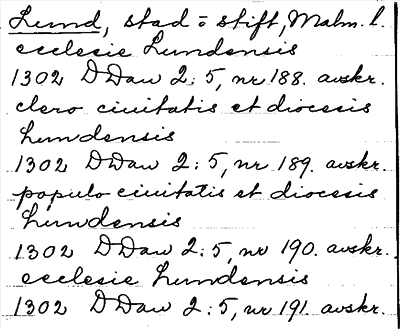 Lund, stad o stift, Malm. l.
ecclesie Lundensis
1302 DDan 2:5, nr 188. avskr.
clero ciuitatis et diocesis
Lundensis
1302 DDan 2:5, nr 189. avskr.
populo ciuitatis et diocesis
Lundensis
1302 DDan 2:5, nr 190. avskr.
ecclesie Lundensis
1302 DDan 2:5, nr 191. avskr.